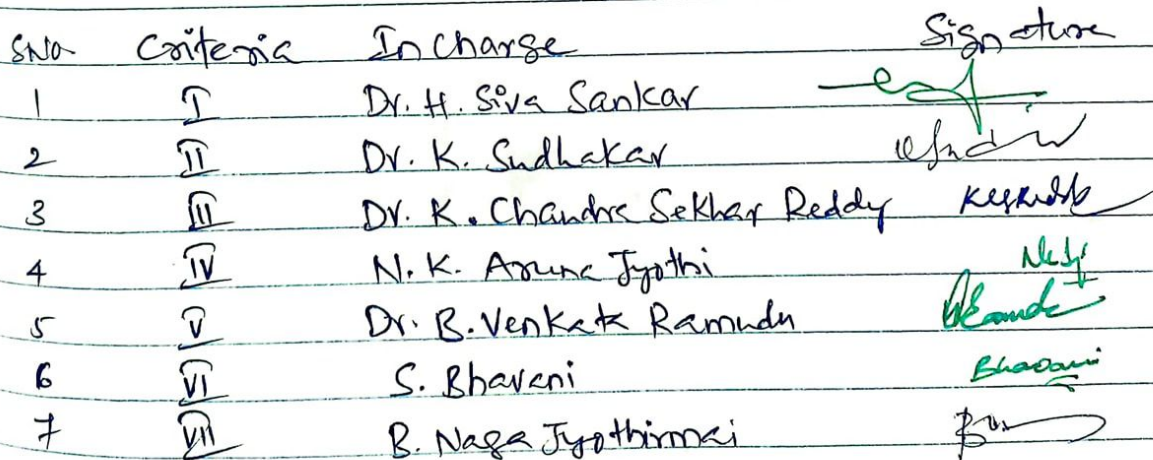 SNo Criteria In Charge Signature
1 I Dr. H. Siva Sankar
2 II Dr. K. Sudhakar
3 III Dr. K. Chandra Sekhar Reddy
4 IV N. K. Aruna Jyothi
5 V Dr. B. Venkata Ramudu
6 VI S. Bhavani Bhavani
7 VII B. Naga Jyothirmai